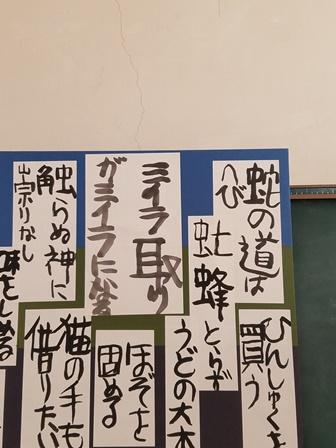 蛇の道は
へび
虻蜂とらず
ミイラ取り
がミイラになる
触らぬ神に
祟りなし
ひんしゅくを
買う
うどの大木
ほぞを
固める
猫の手も
借りたい
味をしめる